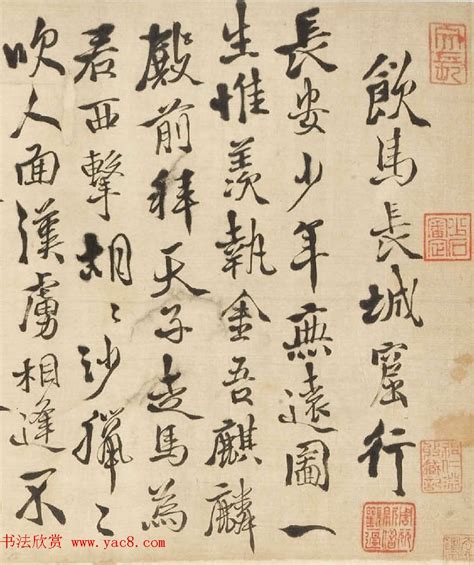 飲馬長城窟行
長安少年無遠圖一
生惟羨執金吾麒麟
殿前拜天子走馬為
君西擊胡〻沙獵〻
吹人面漢虜相逢不
书法欣赏
www.yac8.com